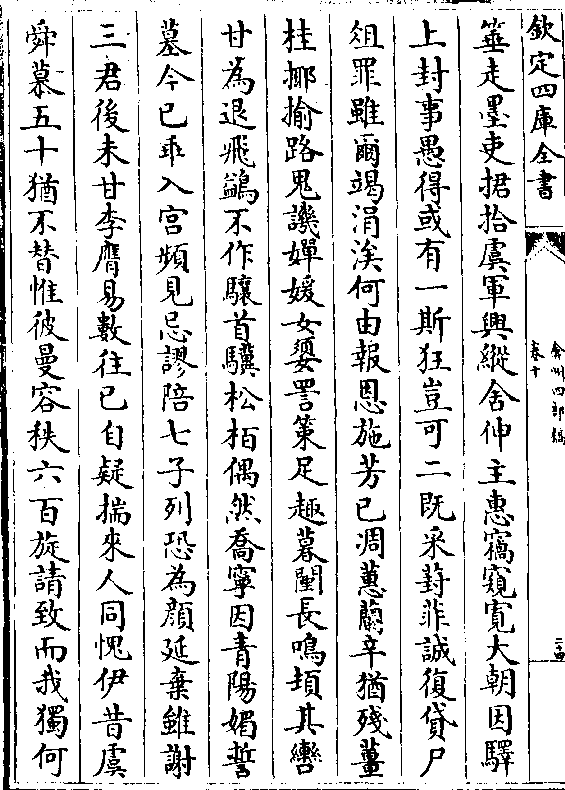 欽定四庫全書
弇州四部稿
卷十
二十四
箠走墨吏捃拾虞軍興縱舍伸主惠竊窺寛大朝因驛
上封事愚得或有一斯狂豈可二既采葑菲誠復貸尸
俎罪雖爾竭涓涘何由報恩施芳已凋蕙蘭辛猶殘薑
桂揶揄路鬼譏嬋媛女嬃詈策足趣暮闉長鳴頓其轡
甘為退飛鷁不作驤首驥松栢偶然喬寧因青陽媚誓
墓今已乖入宮頻見忌謬陪七子列恐為顔延棄雖謝
三君後未甘李膺易數往已自疑揣來人同愧伊昔虞
舜慕五十猶不替惟彼曼容秩六百旋請致而我獨何